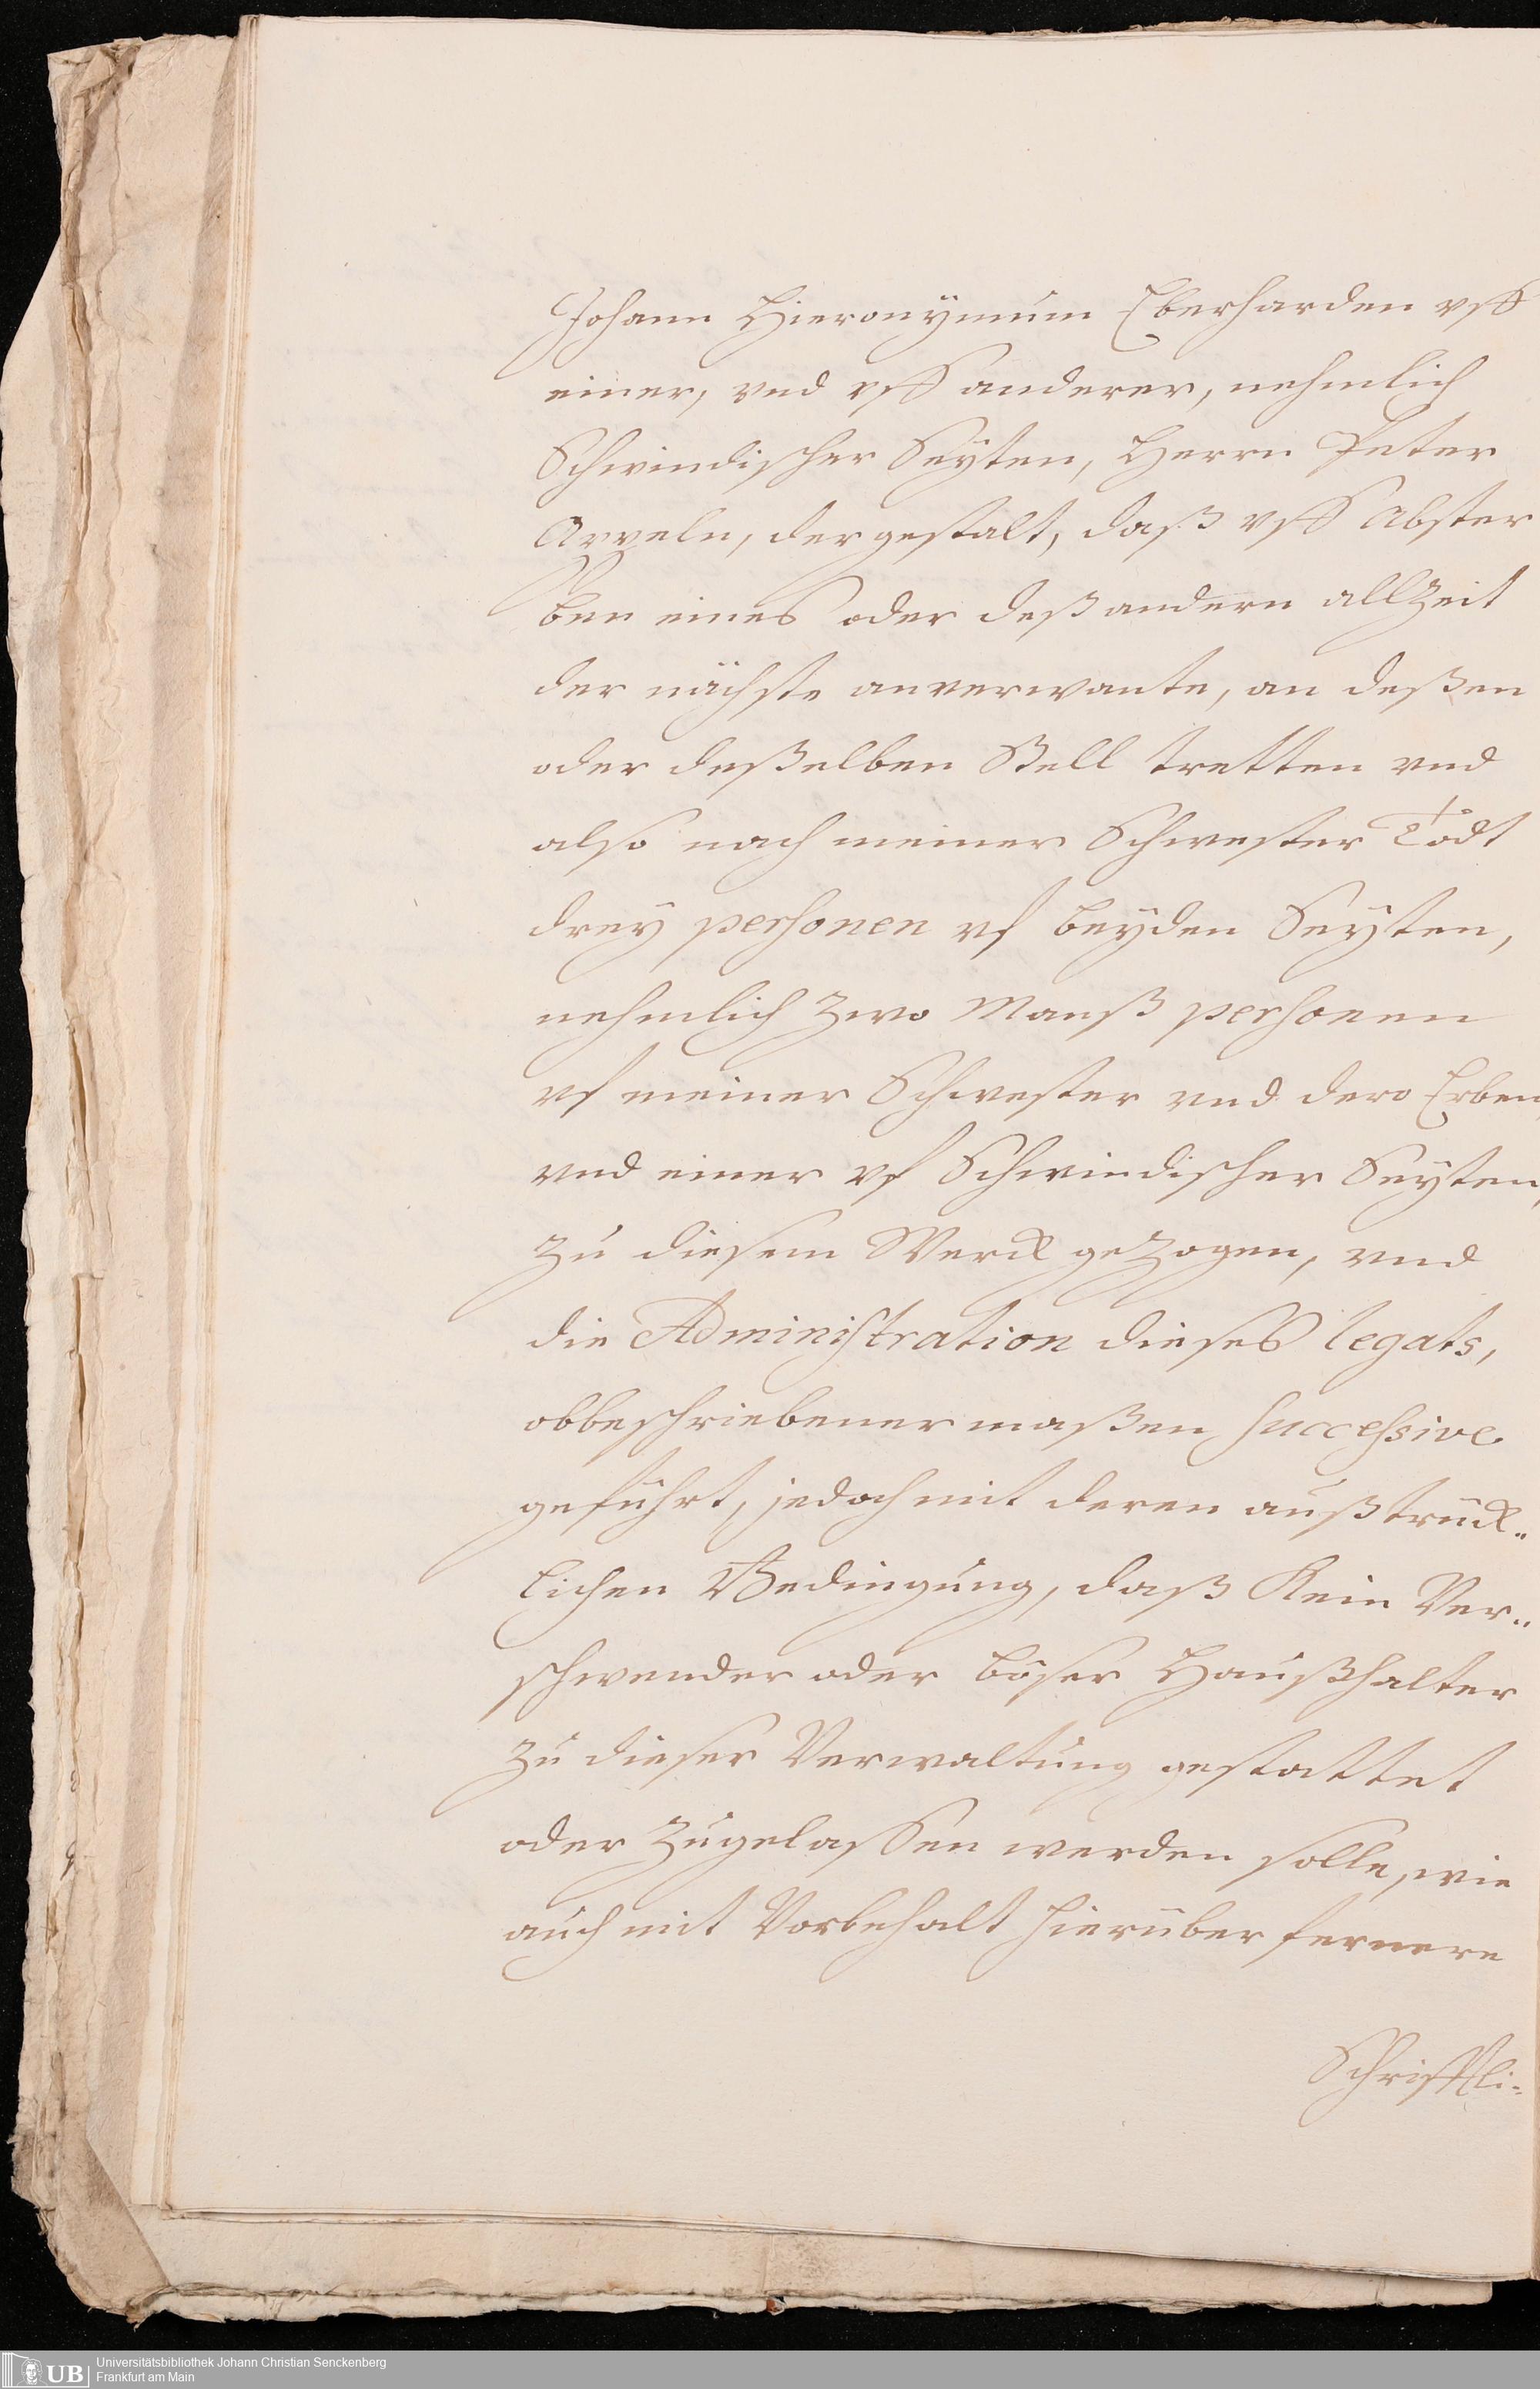 Johann Hieronymum Eberharden vff
einer, vnd vff anderer, nehmlich
Schwindischer Seyten, Herrn Peter
Appeln, dergestalt, daß vff Abster
ben eines oder deß andern allzeit
der nächste anverwante, an deßen
oder deßelben Stell tretten vnd
also nach meiner Schwester Todt
drey personen vf beyden Seyten,
nehmlich zwo Manß personen
vf meiner Schwester vnd dero Erben,
vnd einer vf Schwindischer Seyten,
zu diesem Werck gezogen, vnd
die Administration dieses legats,
obbeschriebener maßen successive
geführt, jedoch mit deren außtrück„
lichen Bedingung, daß Kein Ver„
schwender oder böser Haußhalter
zu dieser Verwaltung gestattet
oder zugelassen werden solle, wie
auch mit Vorbehalt hierüber fernere
Schrifftli-
Universitätsbibliothek Johann Christian Senckenberg
Frankfurt am Main
UB